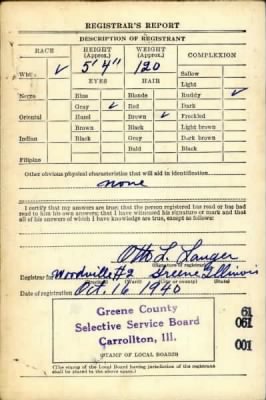 REGISTRAR'S REPORT
DESCRIPTION OF REGISTRANT
RACE HEIGHT (Approx.) WEIGHT (Approx.) COMPLEXION
White ✓ 5' 4" 120 Sallow
Light
EYES HAIR Ruddy ✓
Negro Blue Blonde Dark
Gray ✓ Red Freckled
Oriental Hazel Brown ✓ Light brown
Brown Black Dark brown
Indian Black Gray Black
Bald
Filipino
Other obvious physical characteristics that will aid in identification
none
I certify that my answers are true; that the person registered has read or has had
read to him his own answers; that I have witnessed his signature or mark and that
all of his answers of which I have knowledge are true, except as follows:
Otto L. Langer
(Signature of registrar)
Registrar for Woodville #2 Greene Illinois
(Precinct) (City or county) (State)
Date of registration Oct. 16 1940
Greene County
Selective Service Board
Carrollton, Ill.
(STAMP OF LOCAL BOARD)
61
061
001
(The stamp of the Local Board having jurisdiction of the registrant
shall be placed in the above space.)